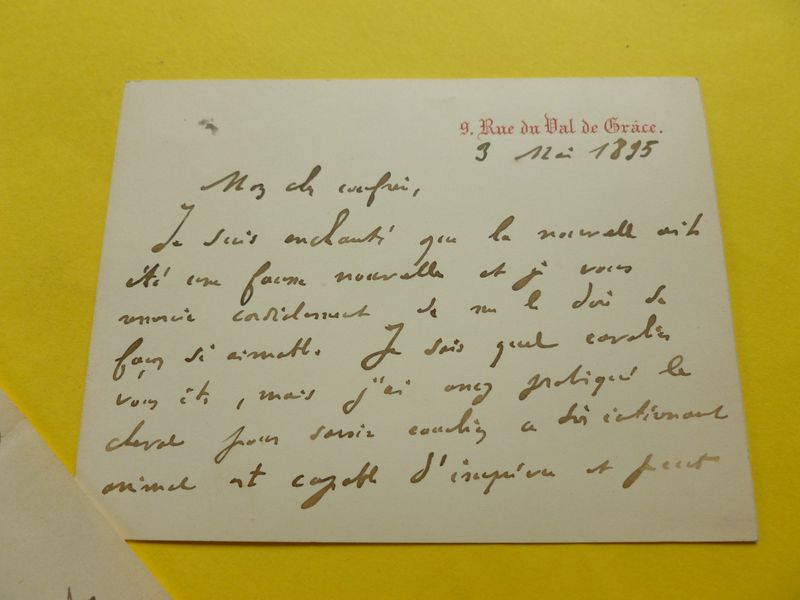 9. Rue du Val de Grâce.
3 Mai 1895
Mon cher confrère,
Je suis enchanté que la nouvelle ait
été une fausse nouvelle et je vous
remercie cordialement de me le dire de
façon si aimable. Je sais quel cavalier
vous êtes, mais j'ai assez pratiqué le
cheval pour savoir combien
animal est capable d'imprévu et peut